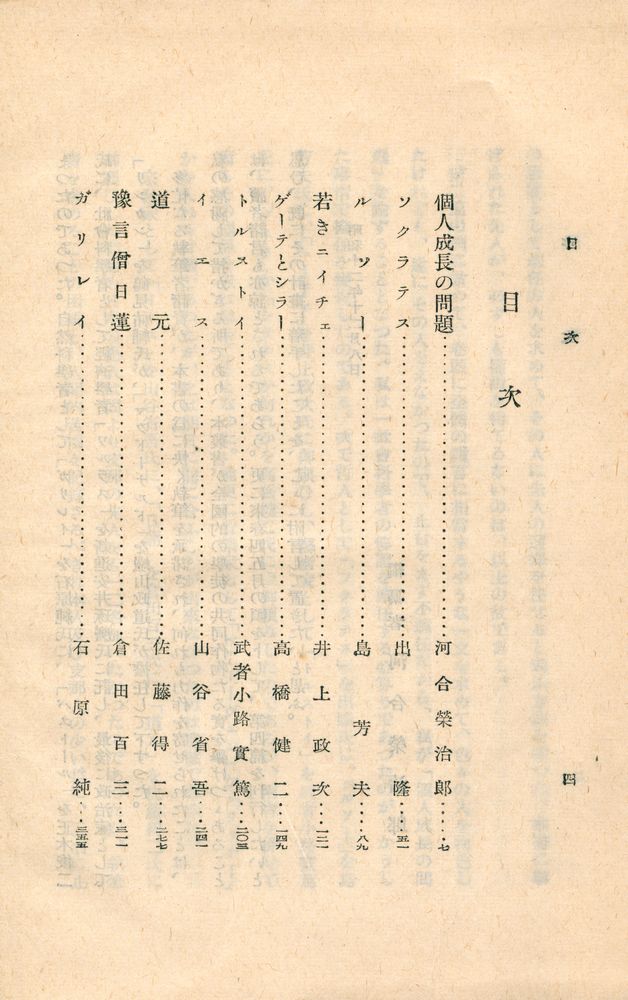 目次
四
目次
個人成長の問題……河合榮治郎……七
ソクラテス……出隆……五一
ルソー……島芳夫……八九
若きニイチェ……井上政次……一二一
ゲーテとシラー……高橋健二……一四九
トルストイ……武者小路實篤……二〇三
イエス……山谷省吾……二四一
道元……佐藤得二……二七七
豫言僧日蓮……倉田百三……三一一
ガリレイ……石原純……三五五